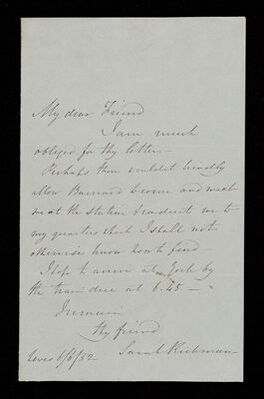 My dear Friend
I am much
obliged for thy letter—
Perhaps thou wouldst kindly
allow Barnard to come and meet
me at the station to conduct me to
my quarters which I shall not
otherwise know how to find—
I hope to arrive at York by
the train due at 6.45—
I remain
Thy friend
6/6/52 Sarah